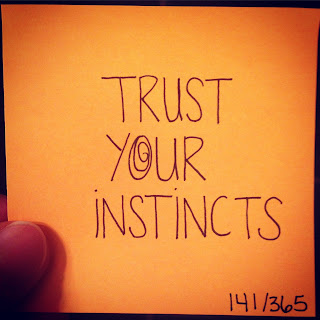 TRUST
YOUR
iNSTiNCTS
141/365